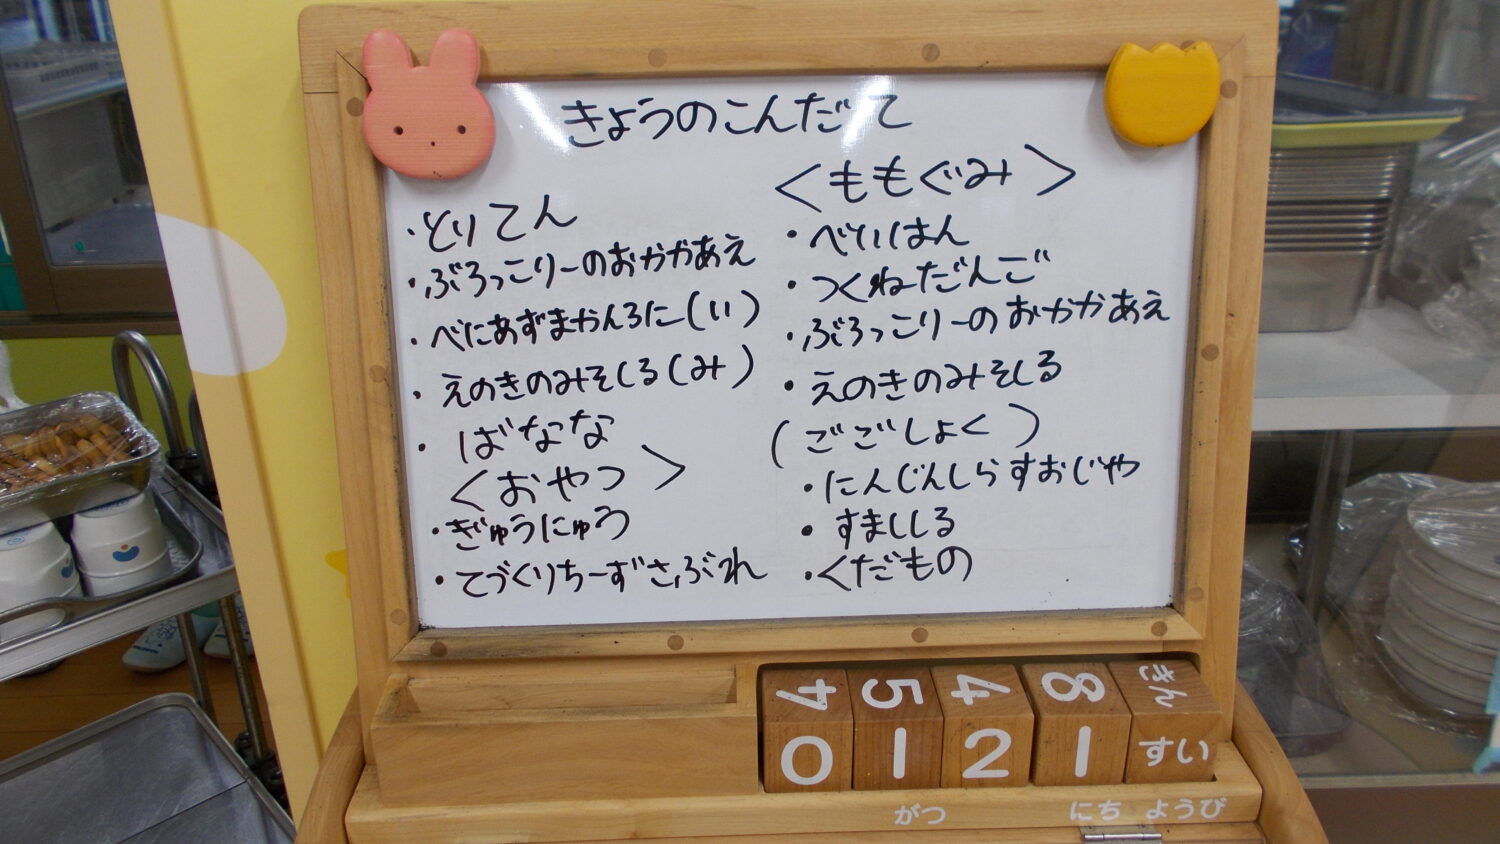 きょうのこんだて
・とりてん
・ぶろっこりーのおかかあえ
・べにあずまかんろに(い)
・えのきのみそしる(み)
・ばなな
＜おやつ＞
・ぎゅうにゅう
・てづくりちーずさぶれ
＜ももぐみ＞
・べいはん
・つくねだんご
・ぶろっこりーのおかかあえ
・えのきのみそしる
(ごごしょく)
・にんじんしらすおじや
・すましじる
・くだもの
4 5 4 8 きん
0 1 2 1 すい
がつ にち ようび